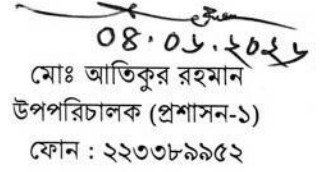 ০৪.০১.২০২৬
মোঃ আতিকুর রহমান
উপপরিচালক (প্রশাসন-১)
ফোন : ২২৩৩৮৯৯৫২